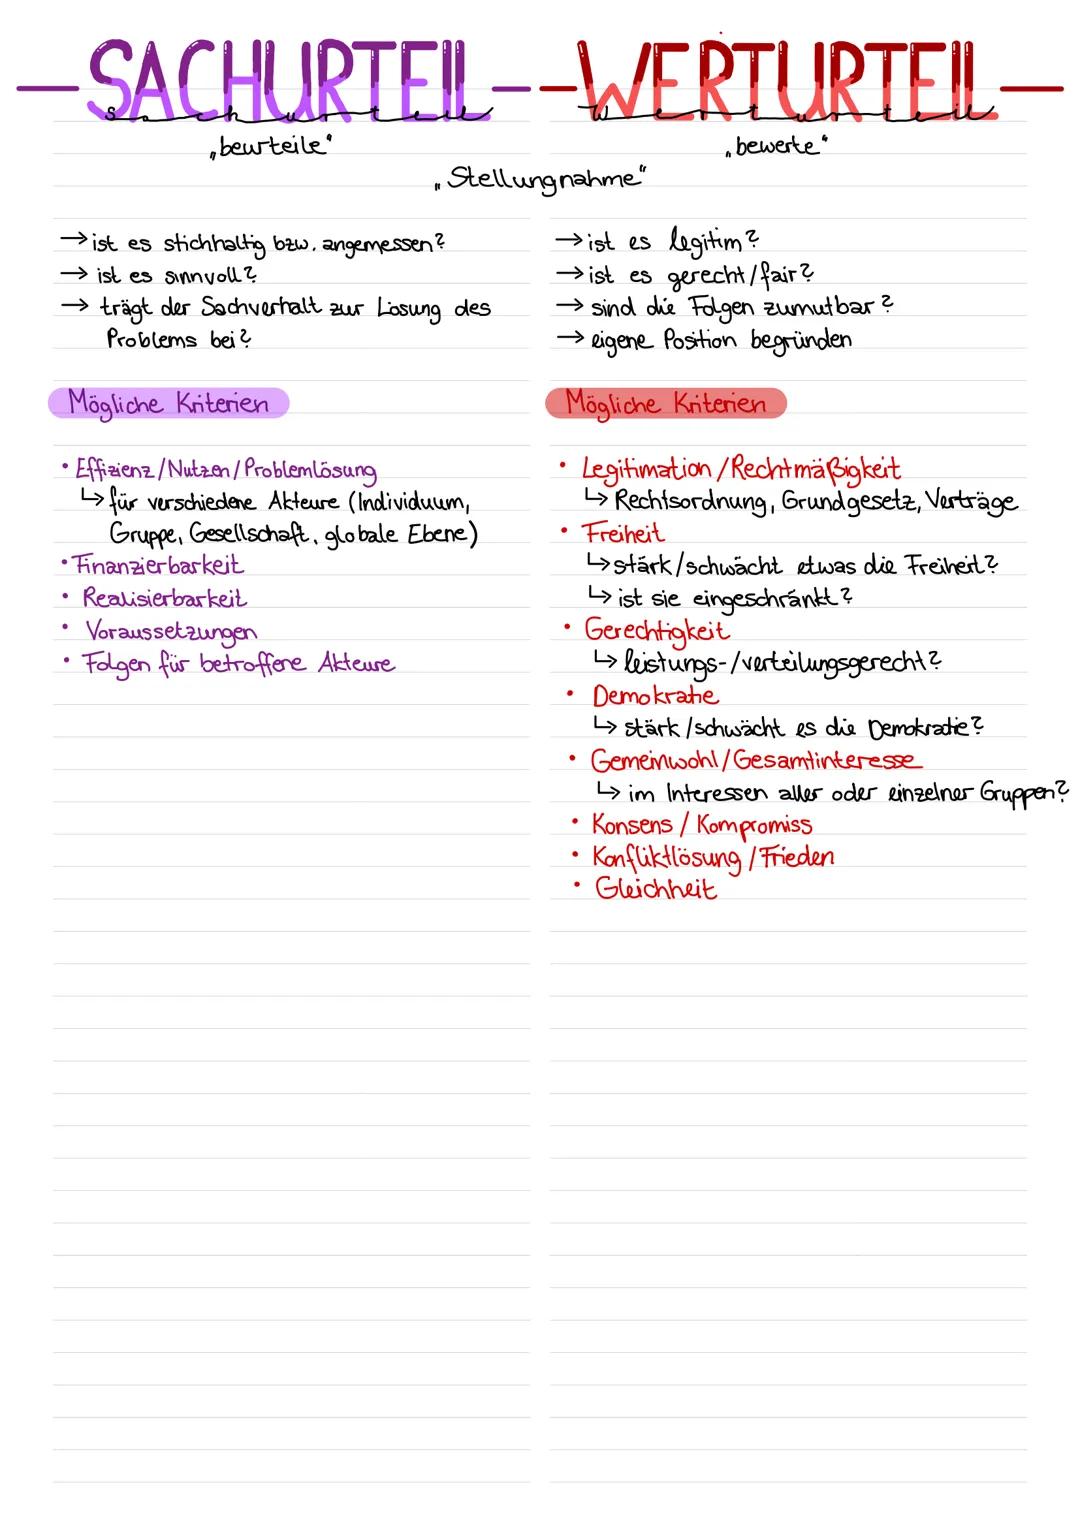 SACHURTEIL
Sachurteil
„beurteile"
WERTURTEIL
Werturteil
„bewerte"
„Stellungnahme"
→ ist es stichhaltig bzw. angemessen?
→ ist es sinnvoll?
→ trägt der Sachverhalt zur Lösung des
Problems bei?
Mögliche Kriterien
• Effizienz/Nutzen/Problemlösung
↳ für verschiedene Akteure (Individuum,
Gruppe, Gesellschaft, globale Ebene)
• Finanzierbarkeit
• Realisierbarkeit
• Voraussetzungen
• Folgen für betroffene Akteure
→ ist es legitim?
→ ist es gerecht/fair?
→ sind die Folgen zumutbar?
→ eigene Position begründen
Mögliche Kriterien
• Legitimation/Rechtmäßigkeit
↳ Rechtsordnung, Grundgesetz, Verträge
• Freiheit
↳ stärk/schwächt etwas die Freiheit?
↳ ist sie eingeschränkt?
• Gerechtigkeit
↳ leistungs-/verteilungsgerecht?
• Demokratie
↳ stärk/schwächt es die Demokratie?
• Gemeinwohl/Gesamtinteresse
↳ im Interessen aller oder einzelner Gruppen?
• Konsens/Kompromiss
• Konfliktlösung/Frieden
• Gleichheit